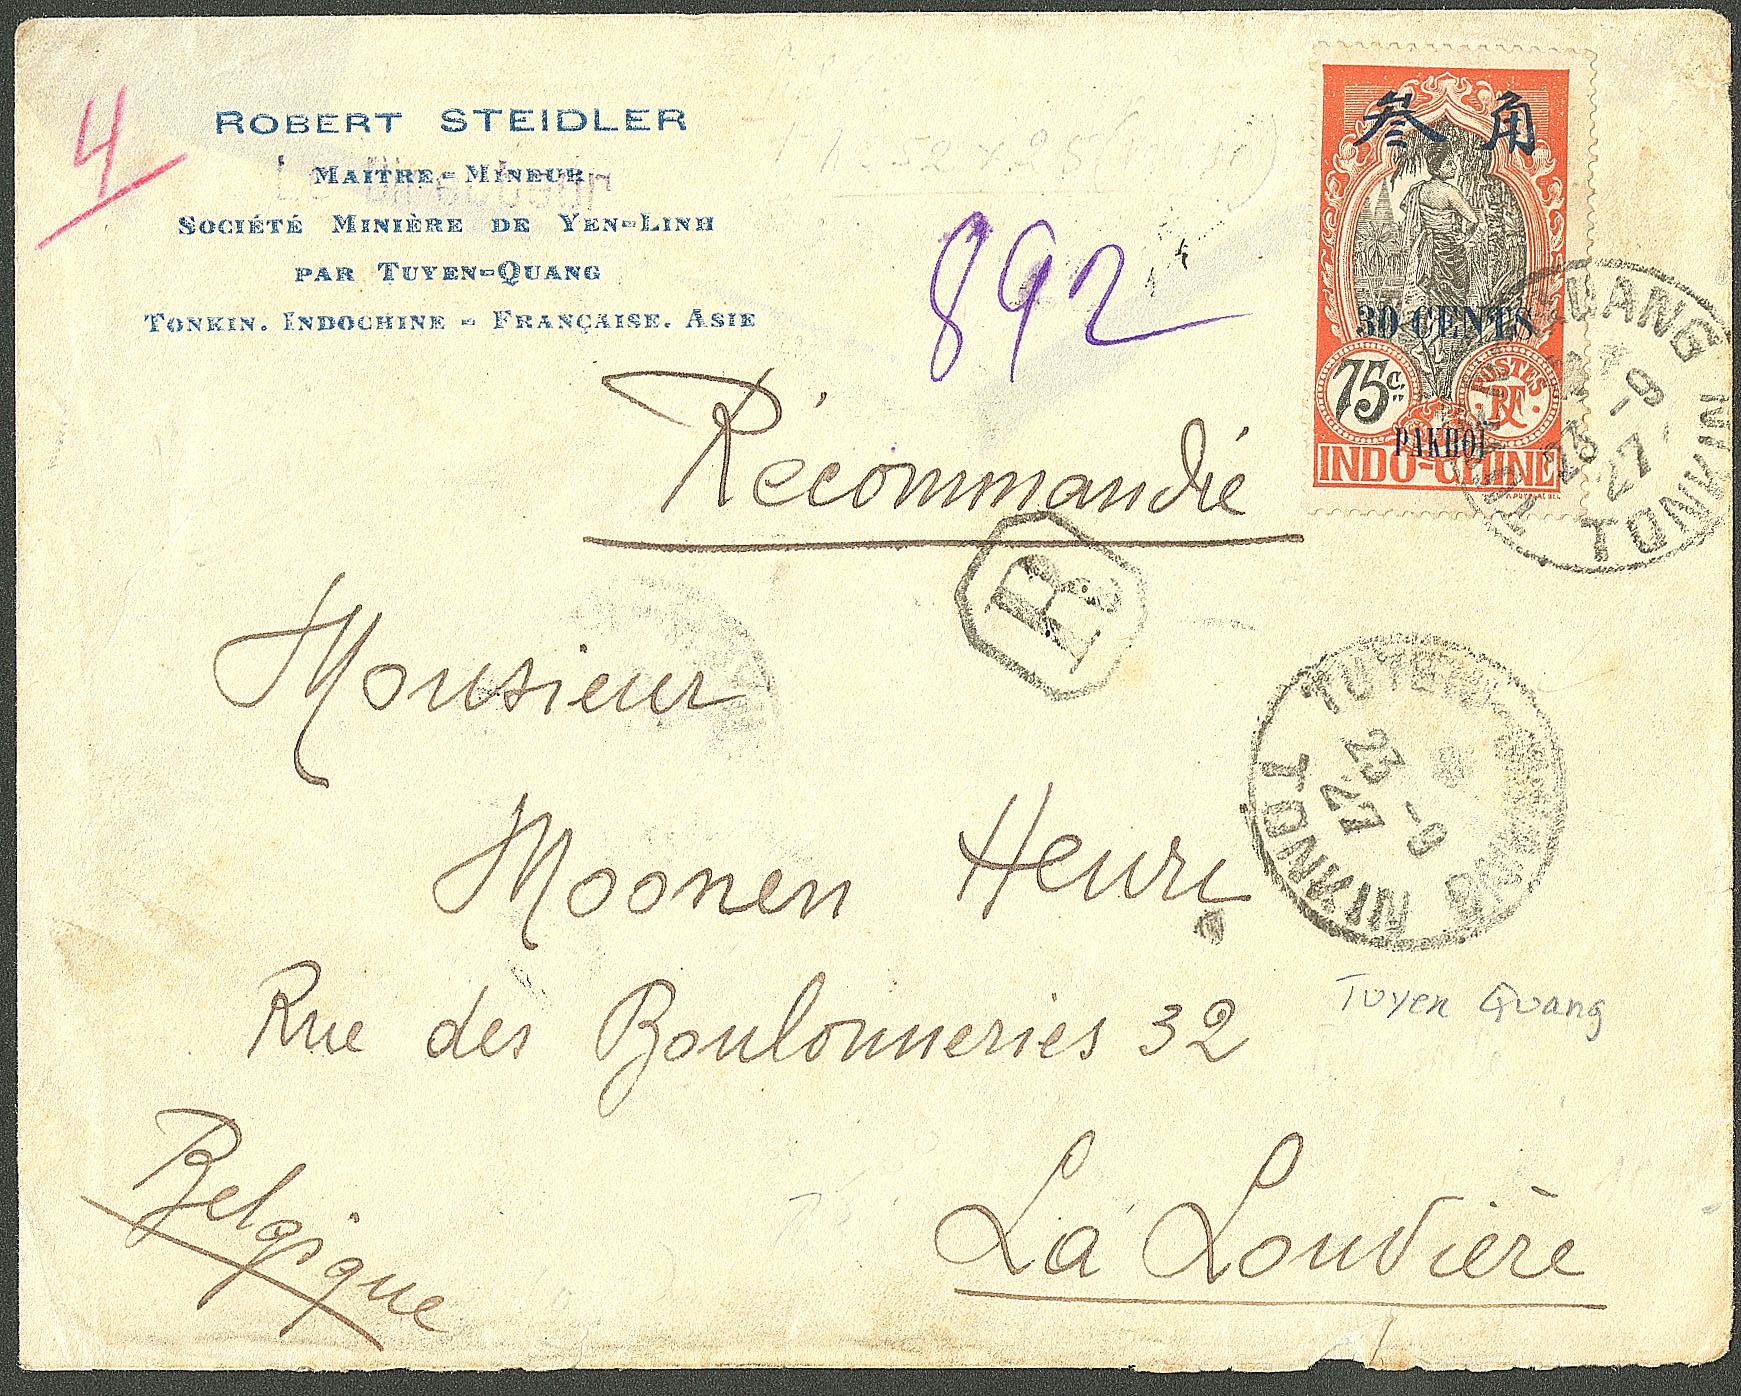 4
ROBERT STEIDLER
MAITRE-MINEUR
Le Directeur
SOCIÉTÉ MINIÈRE DE YEN-LINH
PAR TUYEN-QUANG
TONKIN. INDOCHINE - FRANÇAISE. ASIE
892
叁 角
30 CENTS
75 c.
POSTES
RF
PAKHOI
INDO-CHINE
TUYEN QUANG TONKIN
23 -9
27
Récommandié
R
Monsieur
TUYEN QUANG TONKIN
23 -9
27
Moonen Henri
Tuyen Quang
Rue des Boulonneries 32
Belgique
La Louvière